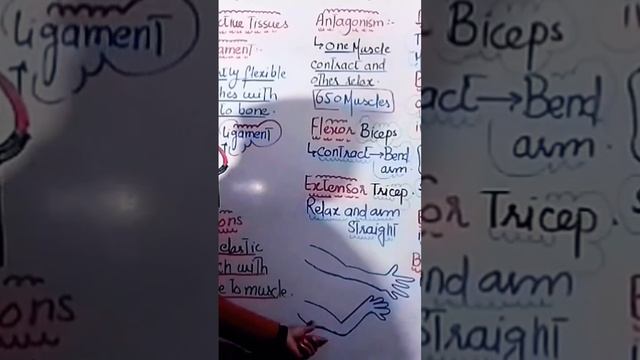 ctive Tissues
ament:-
tly flexible
hes with
to bone.
Ligament
ons
elastic
ch with
e to muscle.
Antagonism:-
↳ one Muscle
contract and
other relax.
650 Muscles
Flexor Biceps
↳ contract → Bend
arm.
Extensor Tricep.
Relax and arm
Straight
Ligament
ons
Biceps
act → Bend
arm.
or Tricep.
nd arm
Straight